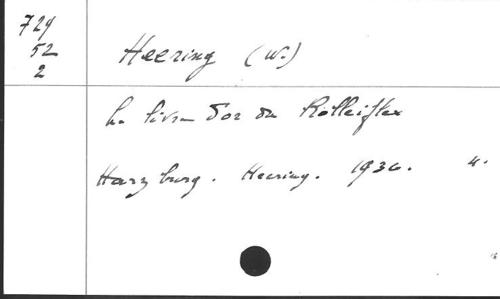 729
52
2
Heering (W.)
Le livre d'or du Rolleiflex
Harzburg. Heering. 1936. 4.